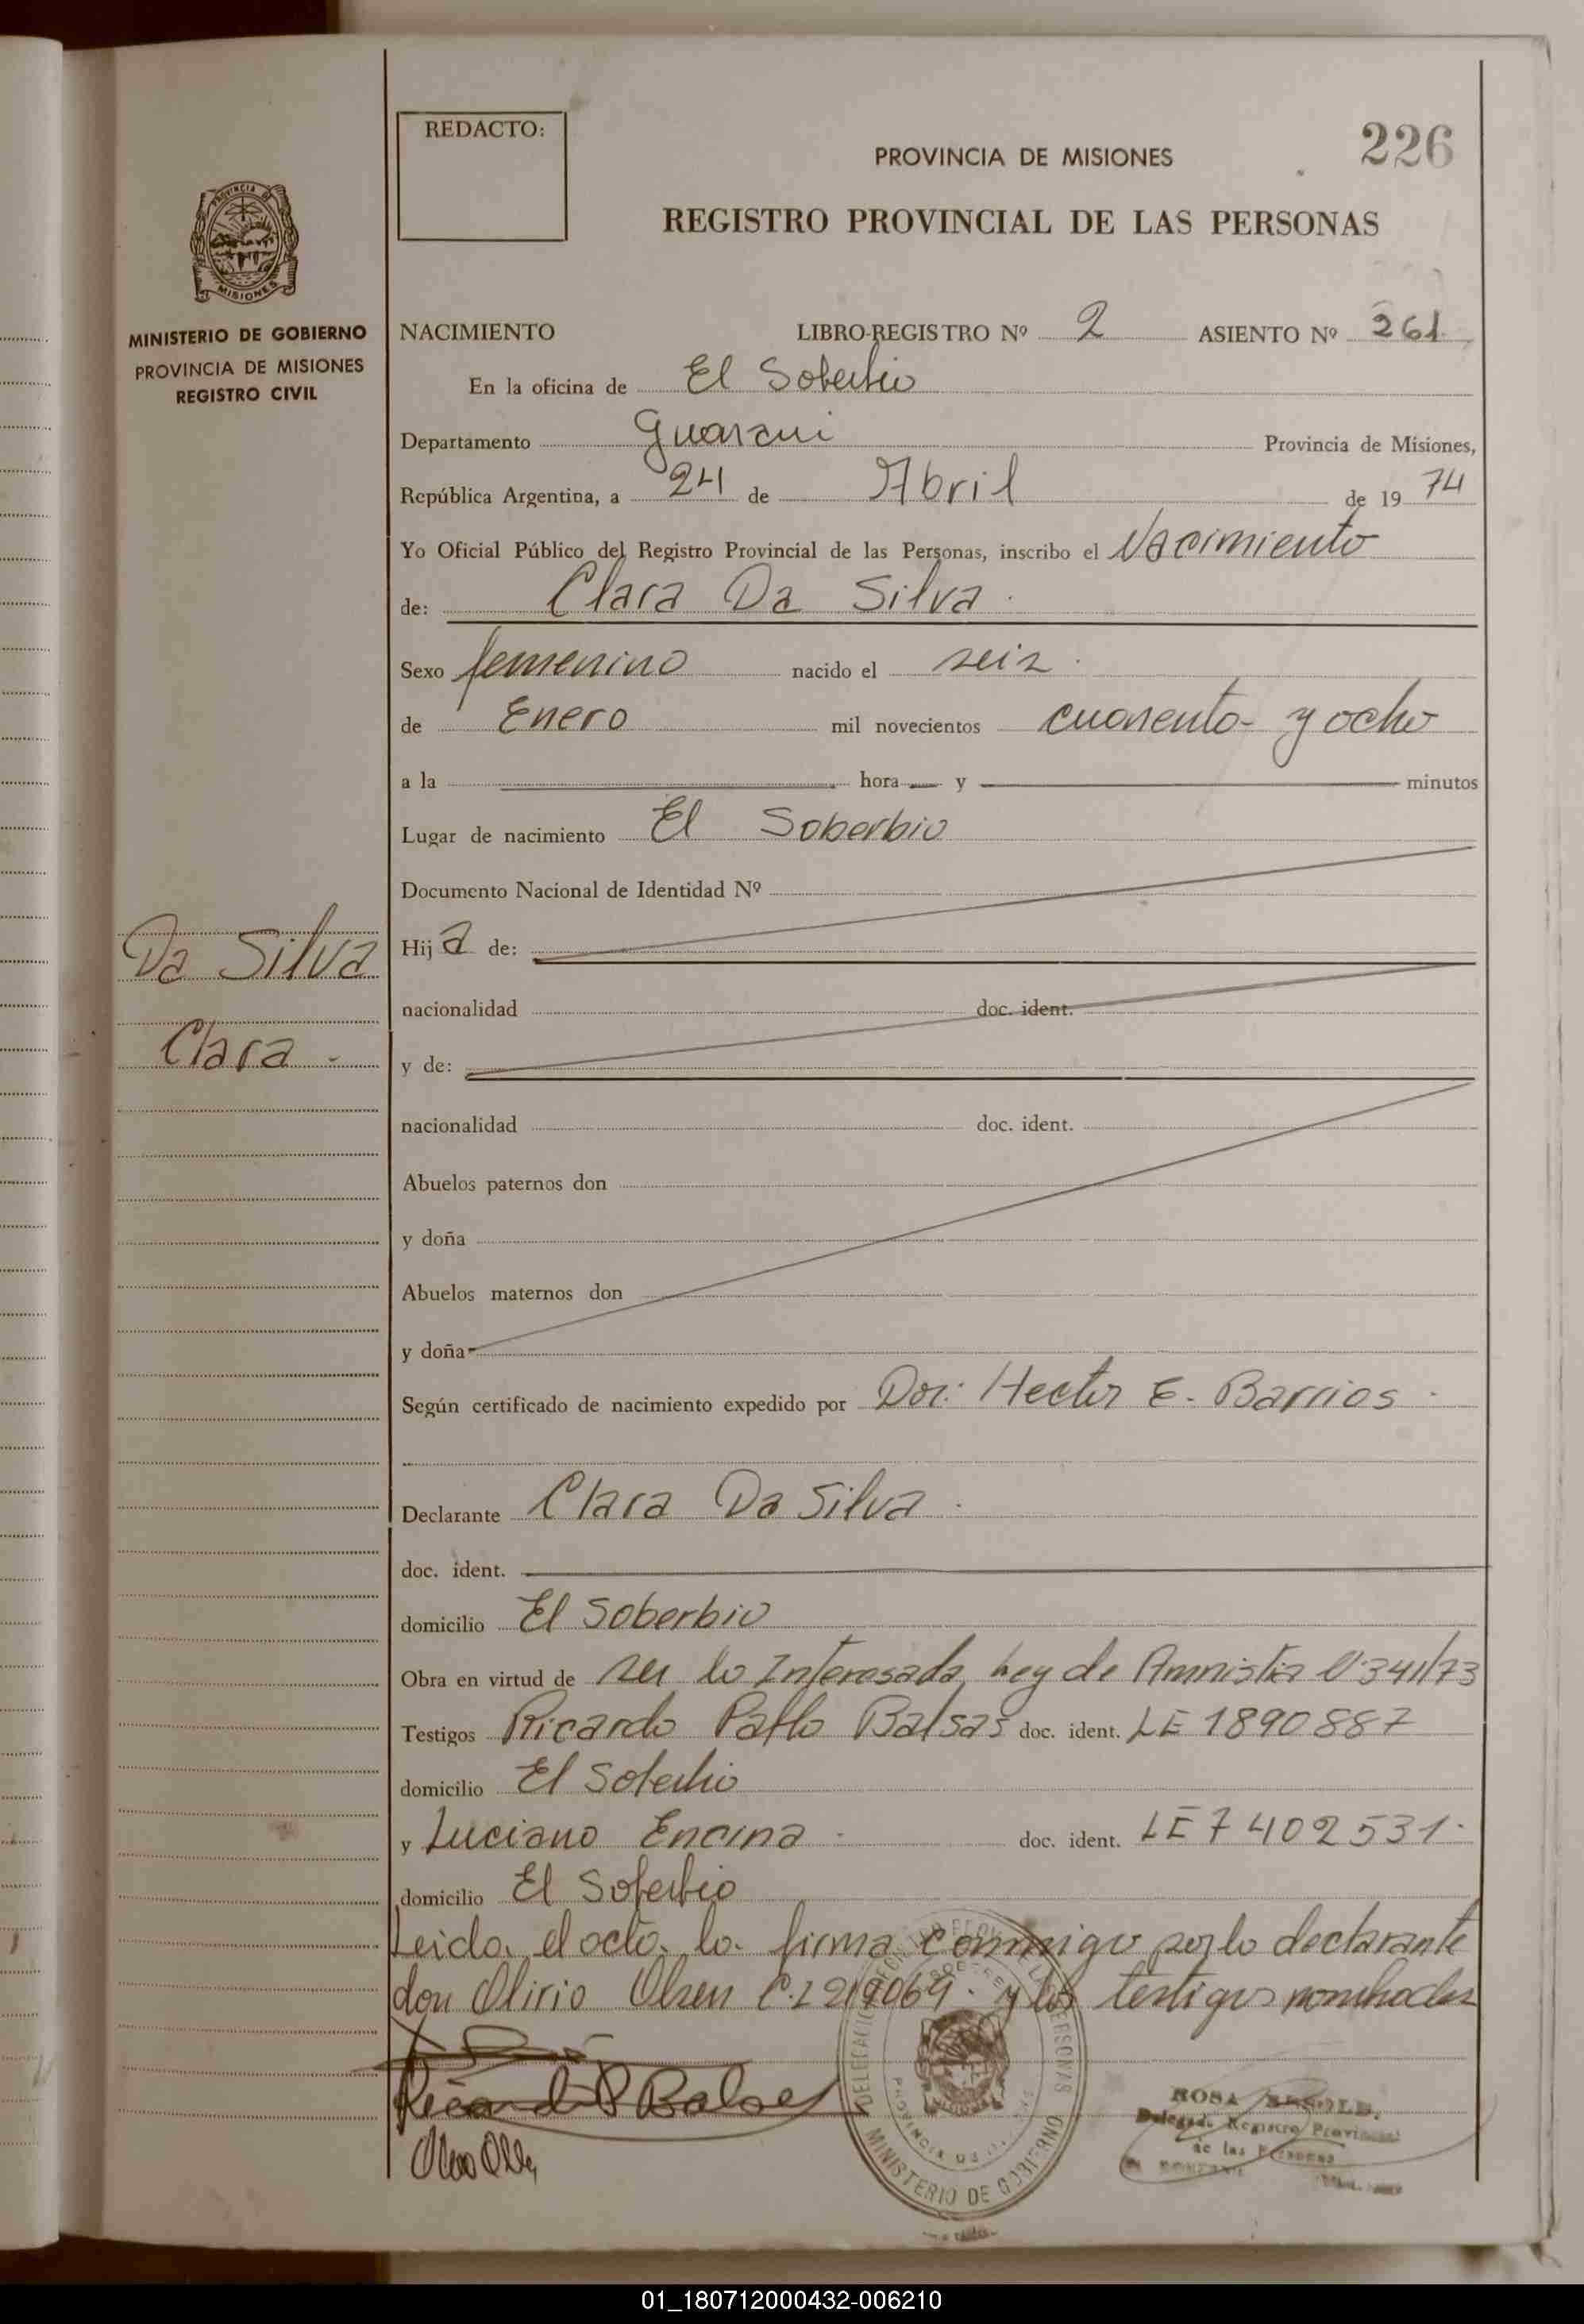 REDACTO:
226
PROVINCIA DE MISIONES
REGISTRO PROVINCIAL DE LAS PERSONAS
PROVINCIA DE
MISIONES
MINISTERIO DE GOBIERNO
PROVINCIA DE MISIONES
REGISTRO CIVIL
NACIMIENTO LIBRO-REGISTRO Nº 2 ASIENTO Nº 261
En la oficina de El Soberbio
Departamento Guarani Provincia de Misiones,
República Argentina, a 24 de Abril de 1974
Yo Oficial Público del Registro Provincial de las Personas, inscribo el Nacimiento
de: Clara Da Silva.
Sexo femenino nacido el seis.
de Enero mil novecientos cuarenta y ocho
a la hora y minutos
Lugar de nacimiento El Soberbio
Documento Nacional de Identidad Nº
Da Silva
Clara.-
Hija de:
nacionalidad doc. ident.
y de:
nacionalidad doc. ident.
Abuelos paternos don
y doña
Abuelos maternos don
y doña
Según certificado de nacimiento expedido por Doc: Hector E. Barrios.
Declarante Clara Da Silva.
doc. ident.
domicilio El Soberbio
Obra en virtud de ser la Interesada, Ley de Amnistia Nº 341/73
Testigos Ricardo Pablo Balsas doc. ident. LE 1890887
domicilio El Soberbio
y Luciano Encina doc. ident. LE 7402531.
domicilio El Soberbio
Leida el acta la firma conmigo por la declarante
don Olirio Olsen C.I 219069. y los testigos nombrados
Ricardo P Balsas
MINISTERIO DE GOBIERNO
ROSA
Delegad. Registro Provincial
de las Personas
01_180712000432-006210